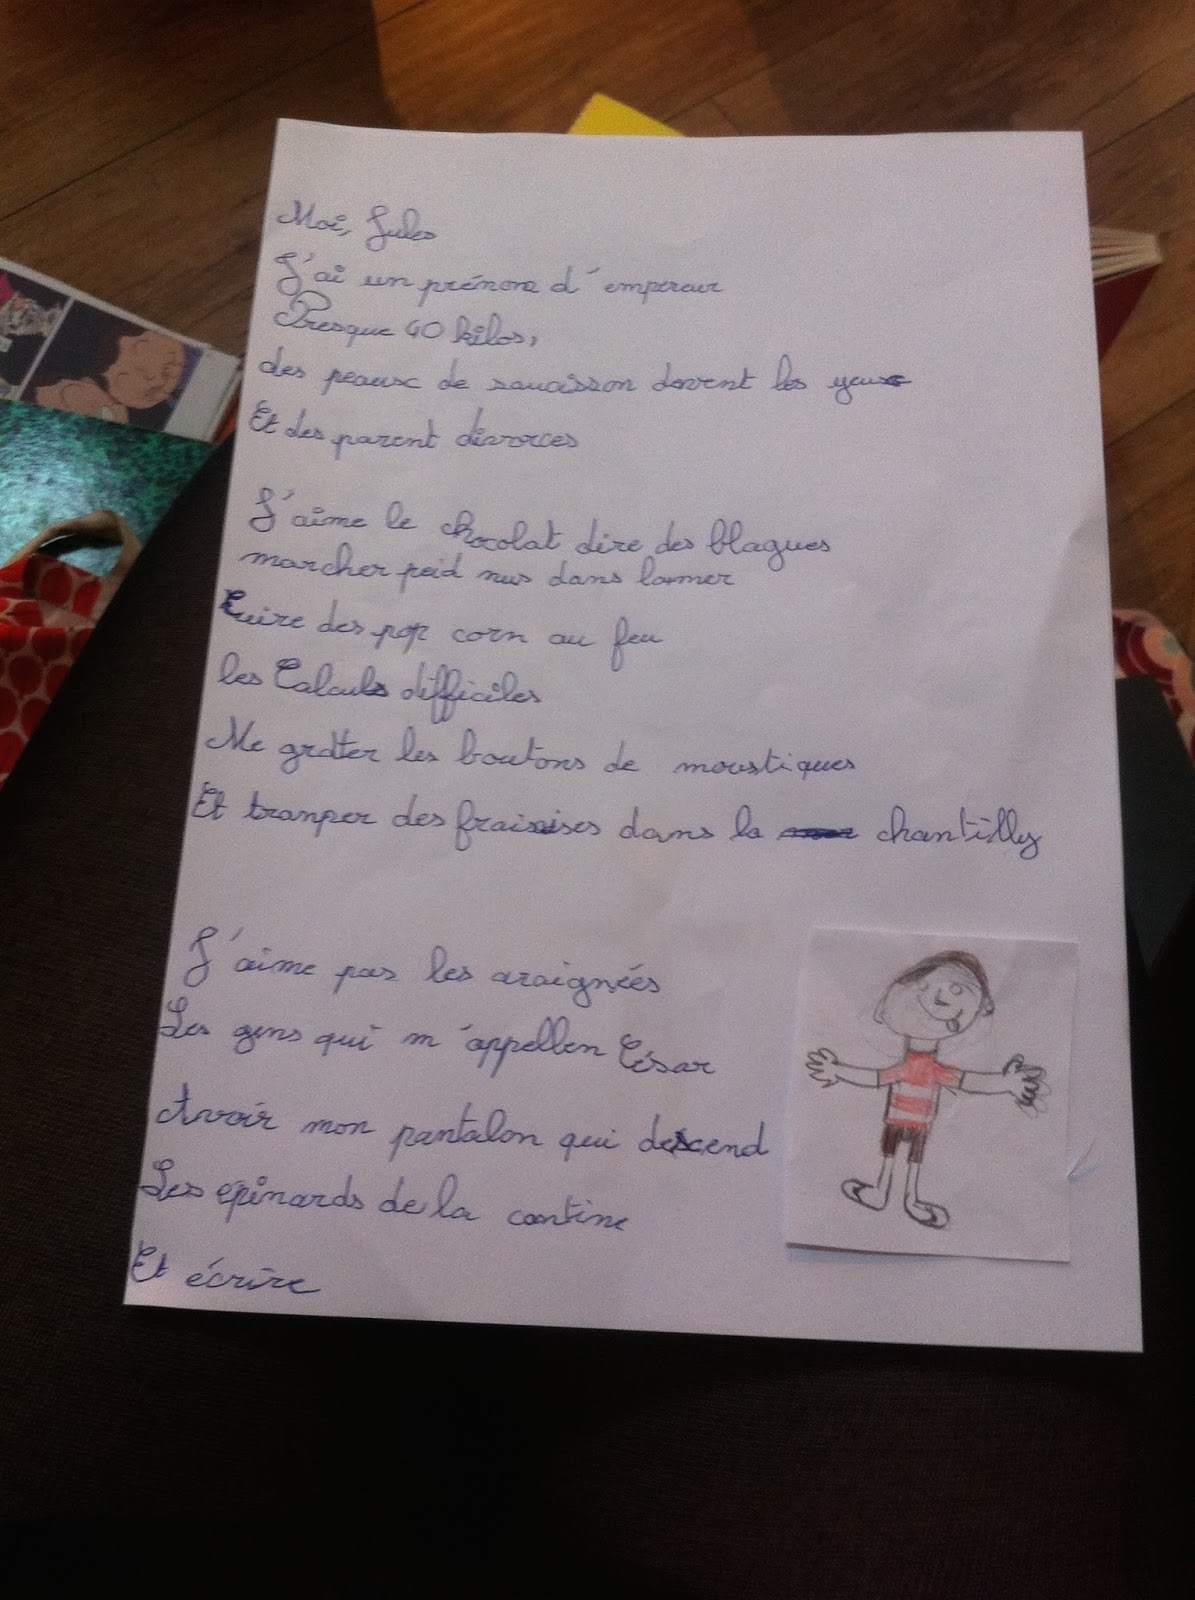 Moi, Jules
J'ai un prénom d'empereur
Presque 40 kilos,
des peaux de saucisson devent les yeux
Et des parent divorces
J'aime le chocolat dire des blagues
marcher peid nus dans la mer
Cuire des pop corn au feu
les Calculs difficiles
Me gratter les boutons de moustiques
Et tranper des fraises dans la chantilly
J'aime pas les araignées
Les gens qui m'appellen César
Avoir mon pantalon qui descend
Les épinards de la cantine
Et écrire